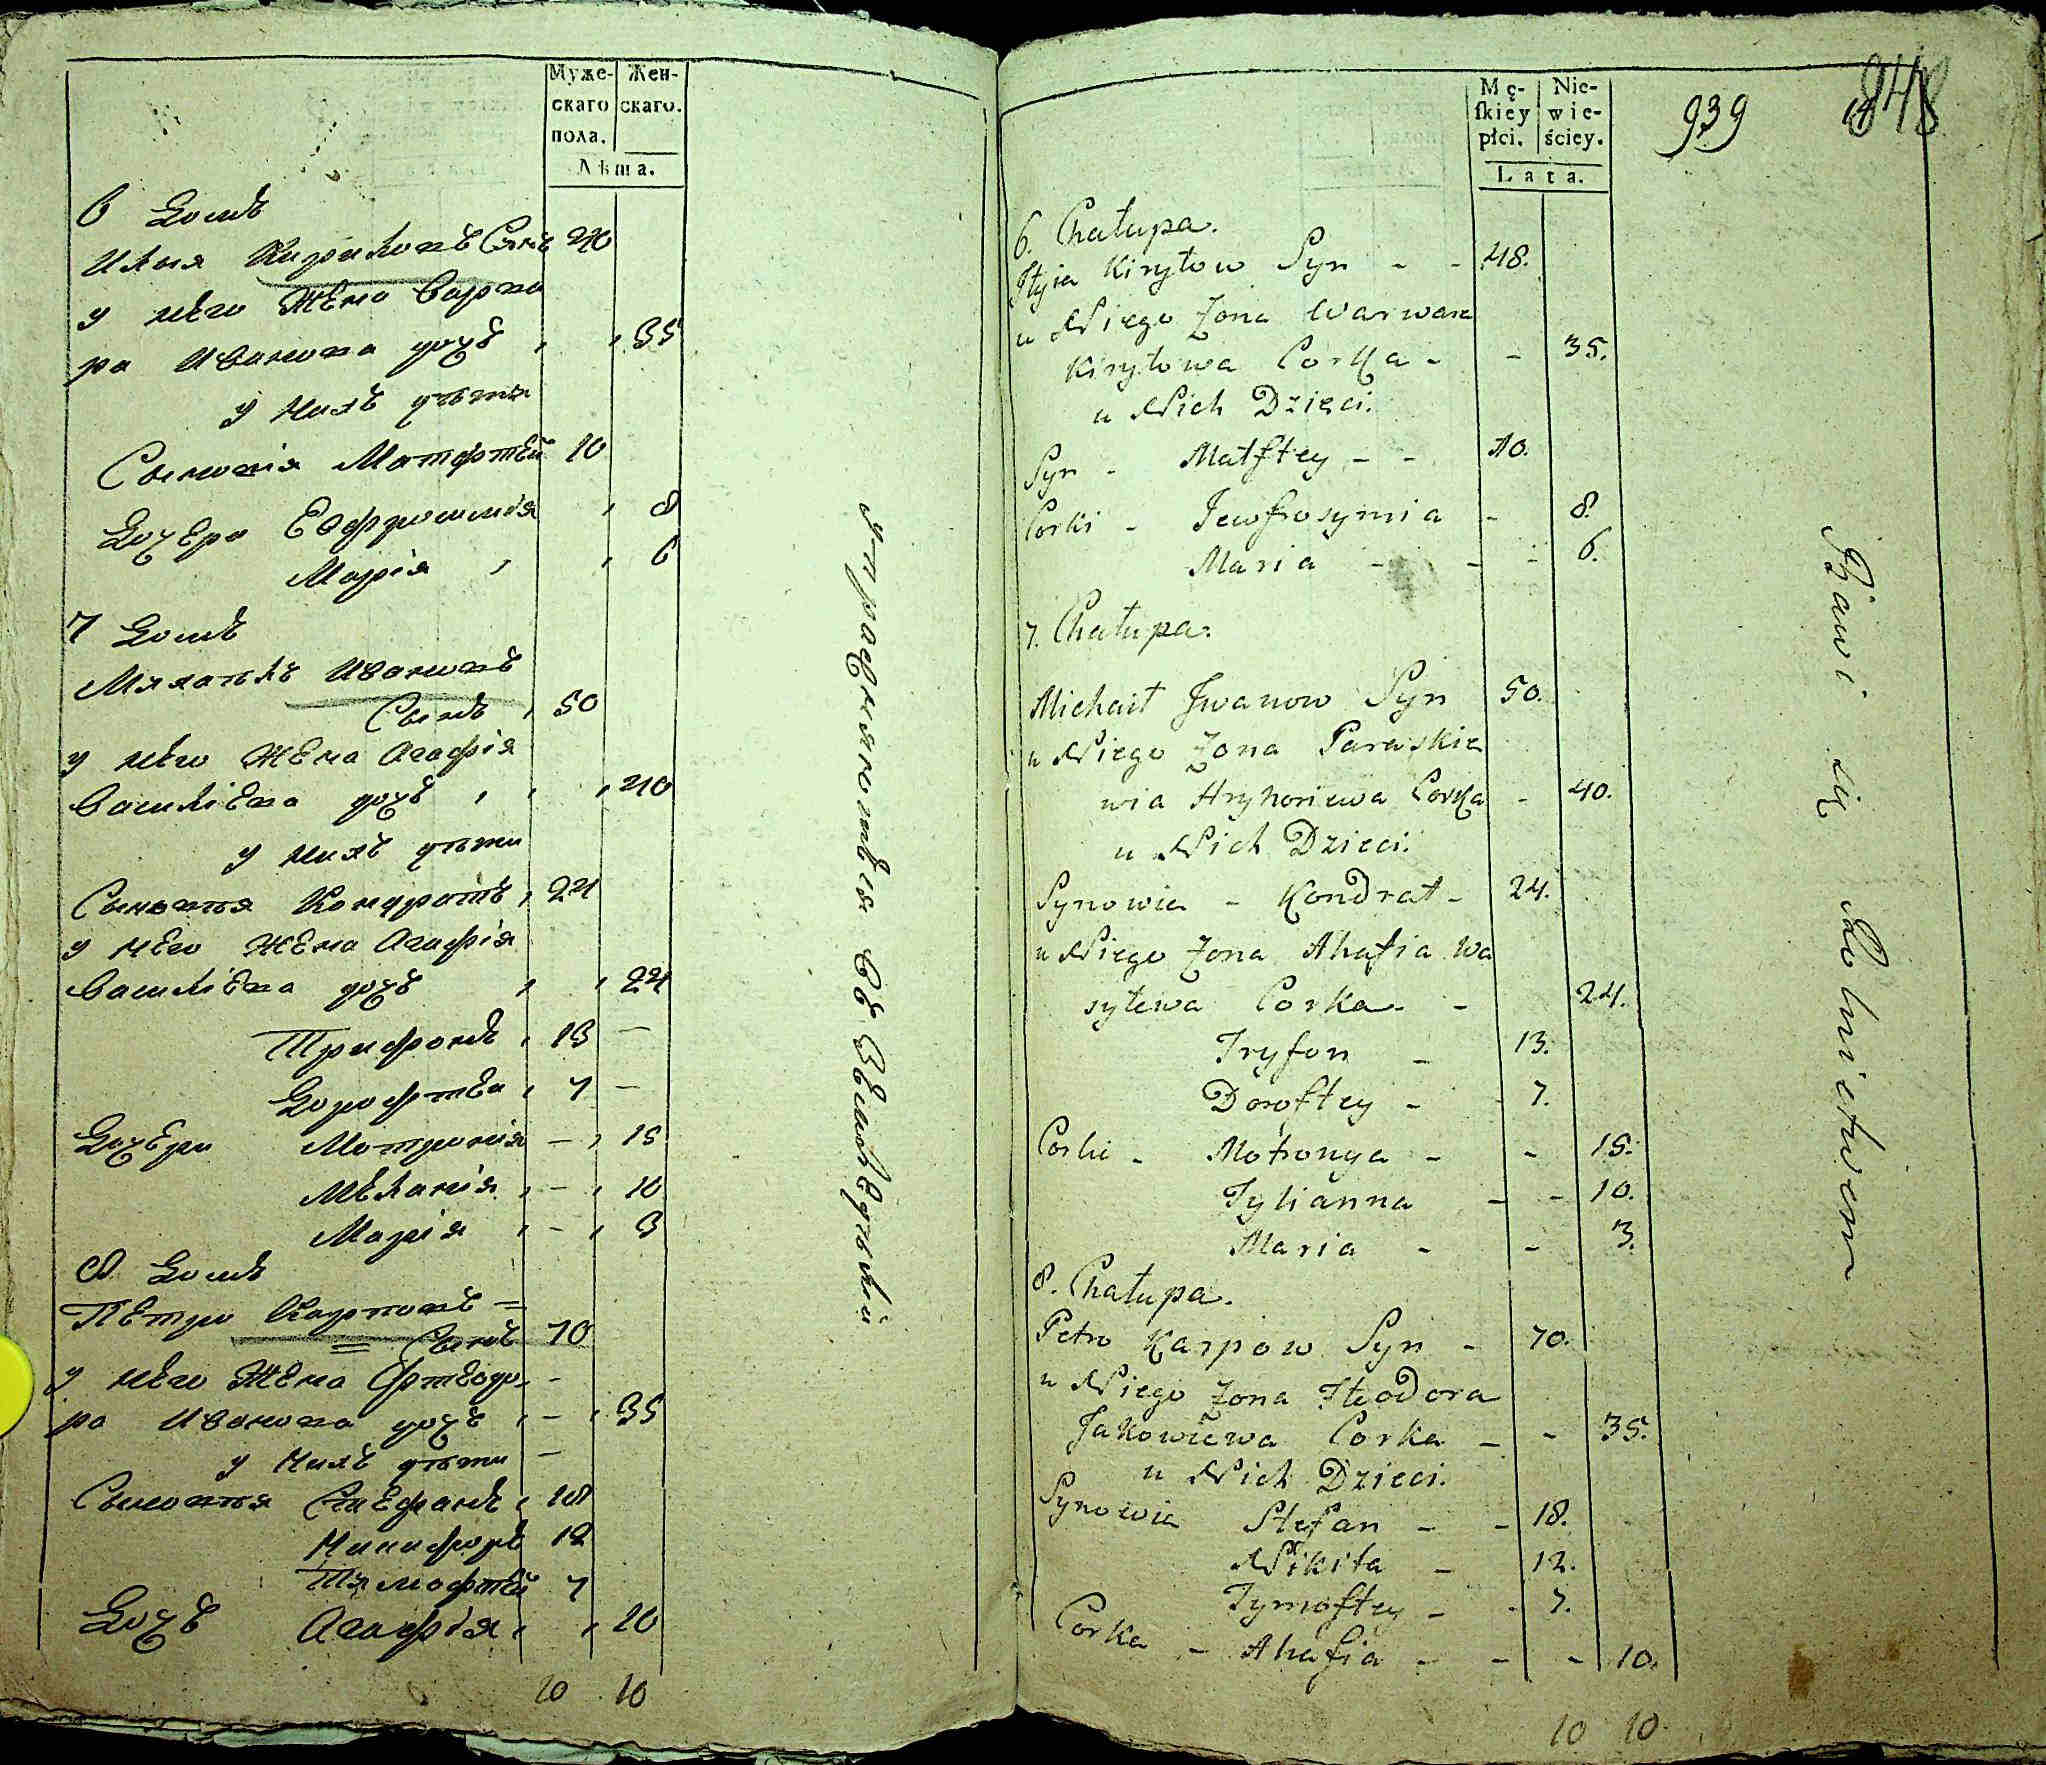 Муже-
скаго
пола.
Жен-
скаго.
Лѣта.
6 Домъ
Илья Кириловъ Сынъ 40
у него Жена Варва
ра Иванова дочь 35
у нихъ дѣти
Сыновія Матфтей 10
Дочери Евфросинія 8
Марія 6
7 Домъ
Михаилъ Ивановъ
Сынъ 50
у него Жена Агафія
Василіева дочь 40
у нихъ дѣти
Сыновья Кондратъ 24
у него Жена Агафія
Василіева дочь 24
Трифонъ 13 —
Дорофтей 7 —
Дочери Мотронія — 15
Меланія — 10
Марія — 3
8 Домъ
Петро Карповъ =
= Сынъ 70
у него Жена Фтеодо -
ра Иванова дочь - 35
у нихъ дѣти —
Сыновья Стефанъ 18
Никифоръ 12
Тимофтей 7
Дочь Агафія 10
10 10
Упражняются въ Земледѣлій
Mę-
skiey
płci.
Nie-
wie-
ściey.
Lata.
939
848
6. Chałupa.
Ilyia Kiryłow Syn - - 48.
u Niego Żona Warwara
Kiryłowa Corka - - 35.
u Nich Dzieci.
Syn - Matftey - - 10.
Corki - Jewfrosymia - 8.
Maria - - - 6.
7. Chałupa.
Michaił Jwanow Syn 50.
u Niego Żona Paraskie
wia Hryhoriewa Corka - 40.
u Nich Dzieci.
Synowia - Kondrat - 24.
u Niego Żona Ahafia Wa
sylewa Corka - - 24.
Tryfon - 13.
Doroftey - - 7.
Corki - Motronya - - 15.
Jylianna - - 10.
Maria - - 3.
8. Chałupa.
Petro Karpow Syn - 70.
u Niego Żona Fteodora
Jakowiewa Corka - - 35.
u Nich Dzieci.
Synowia Stefan - - 18.
Nikita - 12.
Tymoftey - - 7.
Corka - Ahafia - - - 10.
10 10
Bawi się Rolnictwem